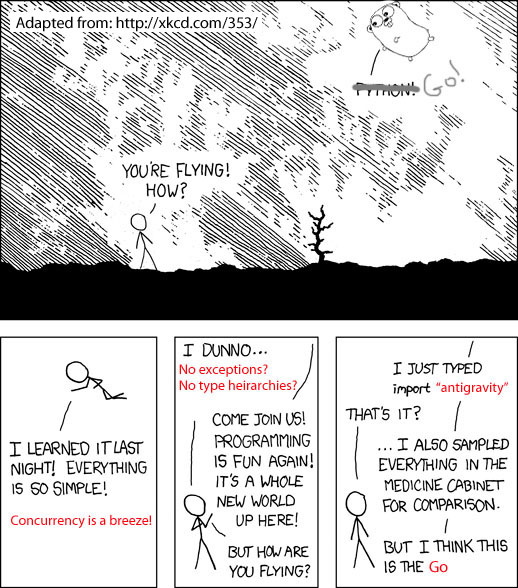 Adapted from: http://xkcd.com/353/
PYTHON! Go!
YOU'RE FLYING!
HOW?
I LEARNED IT LAST
NIGHT! EVERYTHING
IS SO SIMPLE!
Concurrency is a breeze!
I DUNNO...
No exceptions?
No type heirarchies?
COME JOIN US!
PROGRAMMING
IS FUN AGAIN!
IT'S A WHOLE
NEW WORLD
UP HERE!
BUT HOW ARE
YOU FLYING?
I JUST TYPED
import "antigravity"
THAT'S IT?
...I ALSO SAMPLED
EVERYTHING IN THE
MEDICINE CABINET
FOR COMPARISON.
BUT I THINK THIS
IS THE Go